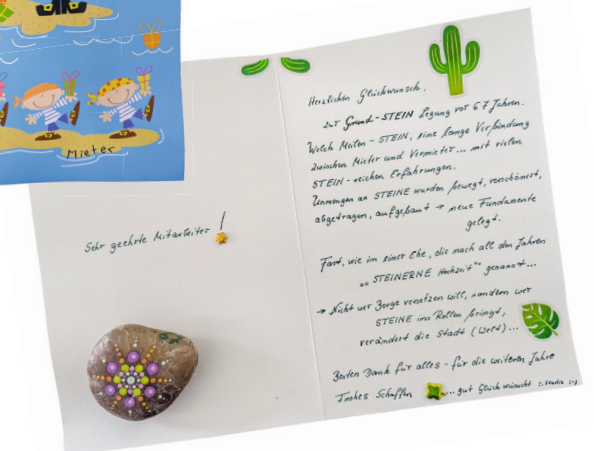 Mieter
Sehr geehrte Mitarbeiter!
67
Herzlichen Glückwunsch,
zur Grund-STEIN legung vor 67 Jahren.
Welch Meilen-STEIN, eine lange Verbindung
zwischen Mieter und Vermieter... mit vielen
STEIN-reichen Erfahrungen.
Unmengen an STEINE wurden bewegt, verschönert,
abgetragen, aufgebaut → neue Fundamente
gelegt.
Fast, wie in einer Ehe, die nach all den Jahren
"STEINERNE Hochzeit" genannt...
→ Nicht wer Berge versetzen will, sondern wer
STEINE ins Rollen bringt,
verändert die Stadt (Welt)...
Besten Dank für alles - für die weiteren Jahre
Frohes Schaffen ... gut Glück wünscht